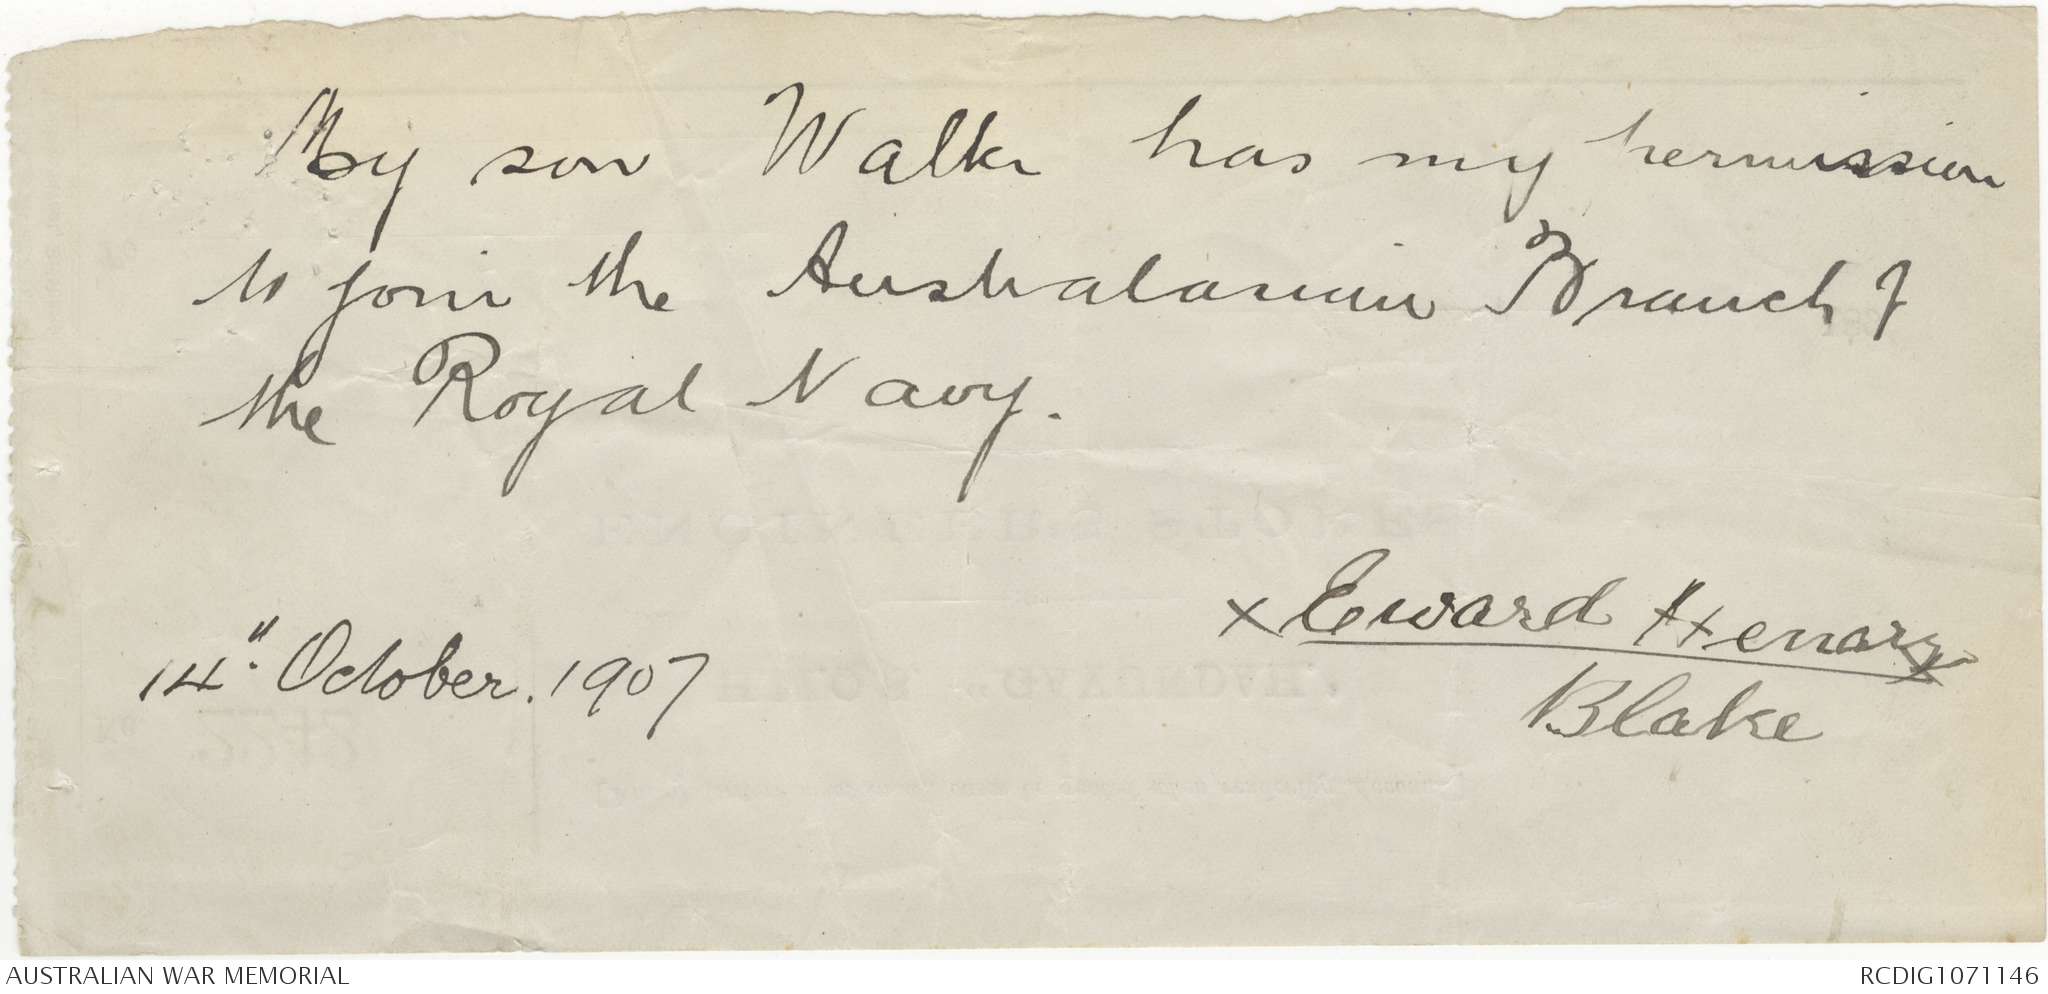 My son Walter has my permission
to join the Australasian Branch of
the Royal Navy.
x Eward Henary x
Blake
14th October. 1907
AUSTRALIAN WAR MEMORIAL
RCDIG1071146